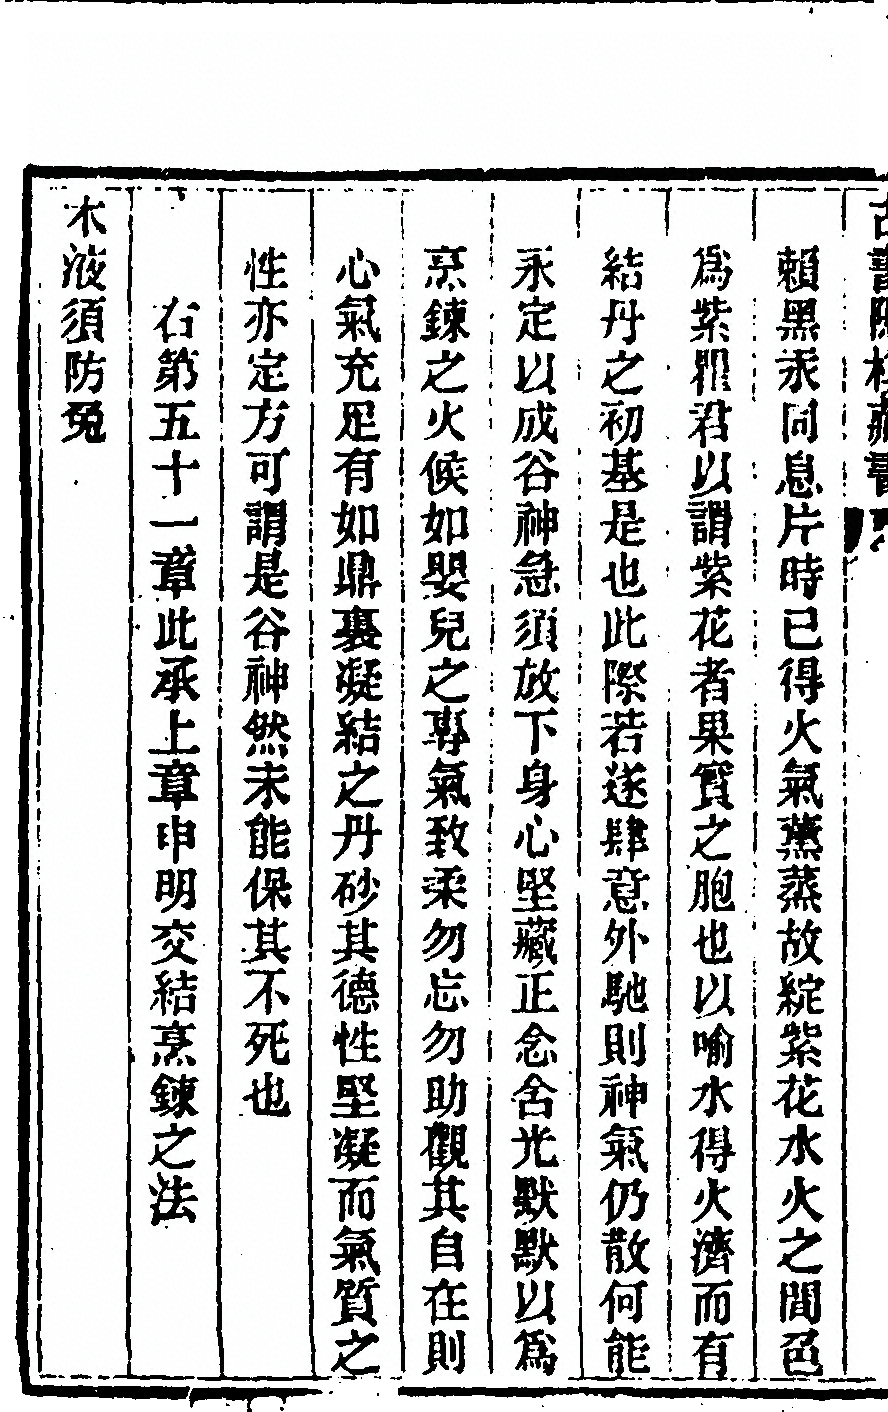 賴黑汞同息片時已得火氣薰蒸故綻紫花水火之間色
爲紫瞿君以謂紫花者果實之胞也以喻水得火濟而有
結丹之初基是也此際若遂肆意外馳則神氣仍散何能
永定以成谷神急須放下身心堅藏正念含光默默以爲
烹鍊之火候如嬰兒之專氣致柔勿忘勿助觀其自在則
心氣充足有如鼎裏凝結之丹砂其德性堅凝而氣質之
性亦定方可謂是谷神然未能保其不死也
右第五十一章此承上章申明交結烹鍊之法
木液須防兔